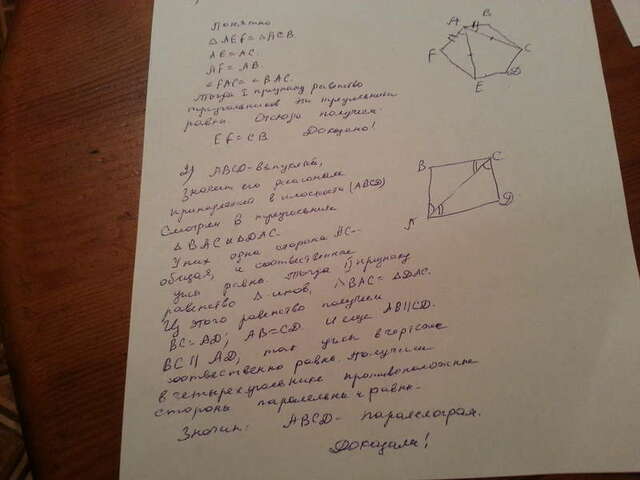 Понятно
△AEF = △ACB.
AE = AC.
AF = AB.
∠FAC = ∠BAC.
Тогда I признаку равенство
треугольников эти треугольники
равны. Отсюда получим:
EF = CB. Доказано!
A B
F C
E D
2) ABCD - выпуклый,
Значит его диагонали
принадлежат в плоскости (ABCD)
Смотрим в треугольники
△BAC и △DAC.
У них одна сторона AC -
общая, и соответственные
углы равны. Тогда признаку
равенство △-иков, △BAC = △DAC.
Из этого равенство получаем
BC = AD; AB = CD. И еще AB || CD.
BC || AD, так углы в чертеже
соответственно равны. Получили
в четырехугольнике противоположные
стороны параллельны и равны.
Значит: ABCD - параллелограм.
Доказали!
B C
A D